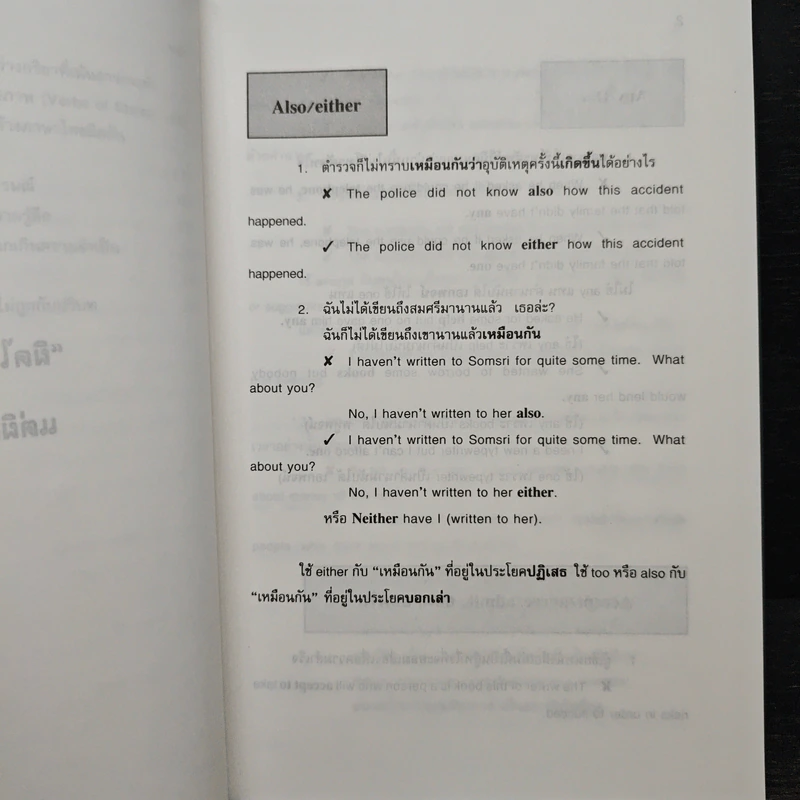 Also/either
1. ตำรวจก็ไม่ทราบเหมือนกันว่าอุบัติเหตุครั้งนี้เกิดขึ้นได้อย่างไร
✘ The police did not know also how this accident
happened.
✓ The police did not know either how this accident
happened.
2. ฉันไม่ได้เขียนถึงสมศรีมานานแล้ว เธอล่ะ?
ฉันก็ไม่ได้เขียนถึงเขานานแล้วเหมือนกัน
✘ I haven't written to Somsri for quite some time. What
about you?
No, I haven't written to her also.
✓ I haven't written to Somsri for quite some time. What
about you?
No, I haven't written to her either.
หรือ Neither have I (written to her).
ใช้ either กับ "เหมือนกัน" ที่อยู่ในประโยคปฏิเสธ ใช้ too หรือ also กับ
"เหมือนกัน" ที่อยู่ในประโยคบอกเล่า